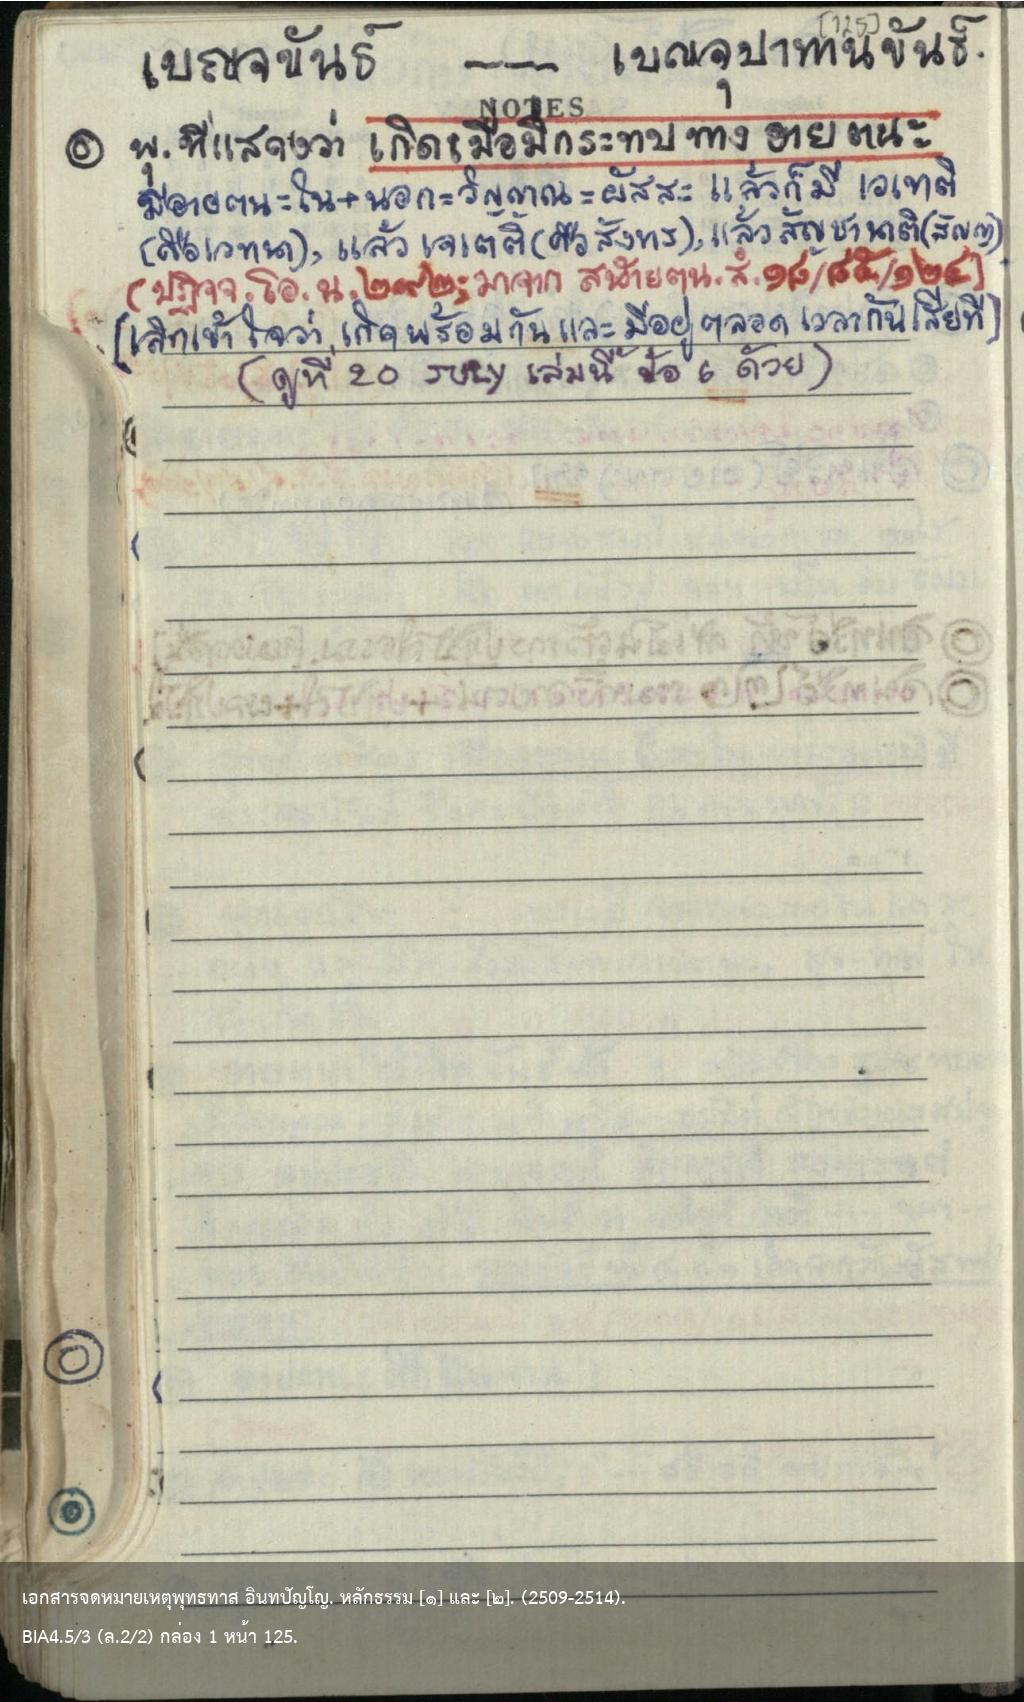 [125]
เบญจขันธ์ --- เบญจุปาทานขันธ์.
NOTES
๏ พุ. ที่แสดงว่า เกิดเมื่อมีกระทบทาง อายตนะ
มีอายตนะใน+นอก=วิญญาณ=ผัสสะ แล้วก็มี เวเทติ
(คือเวทนา), แล้ว เจเตติ (คือ สังขาร), แล้ว สัญชานาติ (สัญญา)
(ปฏิจจ. โอ. น. ๒๙๒; มาจาก สฬายตน. สํ. ๑๘/๘๕/๑๒๔)
[เลิกเข้าใจว่า เกิดพร้อมกันและ มีอยู่ตลอดเวลากันเสียที]
(ดูที่ 20 July เล่มนี้ ข้อ ๖ ด้วย)
เอกสารจดหมายเหตุพุทธทาส อินทปัญโญ. หลักธรรม [๑] และ [๒]. (2509-2514).
BIA4.5/3 (ล.2/2) กล่อง 1 หน้า 125.